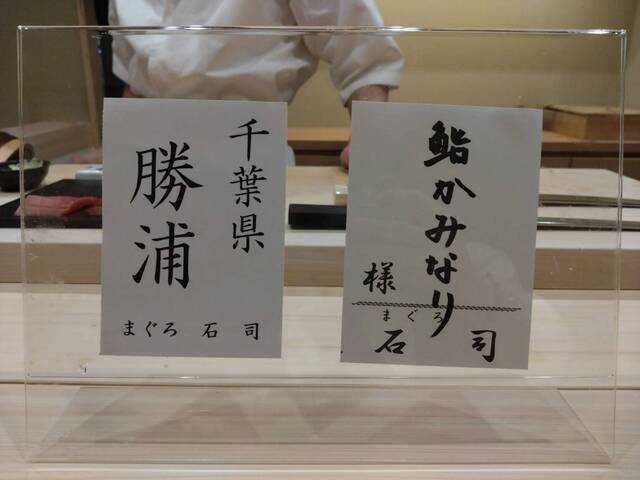 千葉県
勝浦
まぐろ 石司
鮨かみなり
様
まぐろ
石司